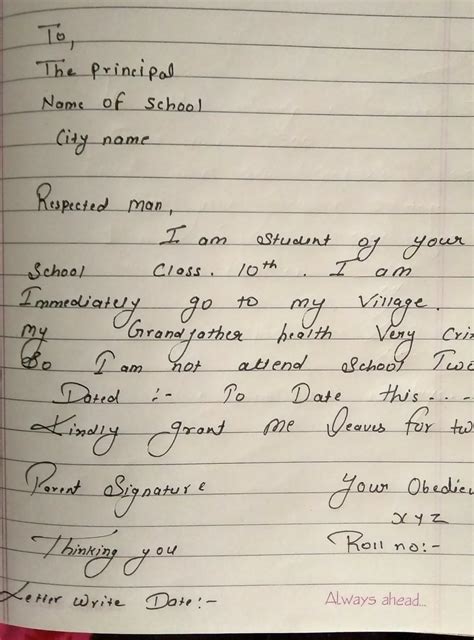 To,
The Principal
Name of School
City name
Respected man,
I am Student of your
School Class. 10th. I am
Immediately go to my Village.
my Grandfather health Very
So I am not attend School Two
Dated :- To Date this - - -
Kindly grant me leaves for
Parent Signature Your
xyz
Thinking you Roll no:-
Letter Write Date:- Always ahead...